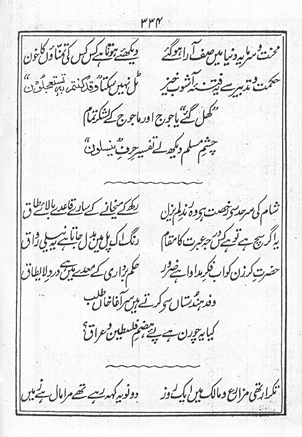 ۳۳۴
محنت و سرمایہ دنیا میں صف آرا ہو گئے دیکھئے ہوتا ہے کس کس کی تمناؤں کا خون
حکمت و تدبیر سے یہ فتنۂ آشوب خیز ٹل نہیں سکتا ”وقد کنتم بہ تستعجلون“
”کھل گئے“ یاجوج اور ماجوج کے لشکر تمام
چشمِ مسلم دیکھ لے تفسیرِ حرفِ ”ینسلون“
شام کی سرحد سے رخصت ہے وہ رندِ لم یزل رکھ کے میخانے کے سارے قاعدے بالائے طاق
یہ اگر سچ ہے تو ہے کس درجہ عبرت کا مقام رنگ اک پل میں بدل جاتا ہے یہ نیلی رواق
حضرتِ کرزن کو اب فکرِ مداوا ہے ضرور حکم برداری کے معدے میں ہے دردِ لایطاق
وفد ہندستاں سے کرتے ہیں سر آغا خاں طلب
کیا یہ چورن ہے پئے ہضمِ فلسطین و عراق؟
تکرار تھی مزارع و مالک میں ایک روز دونوں یہ کہہ رہے تھے مرا مال ہے زمیں